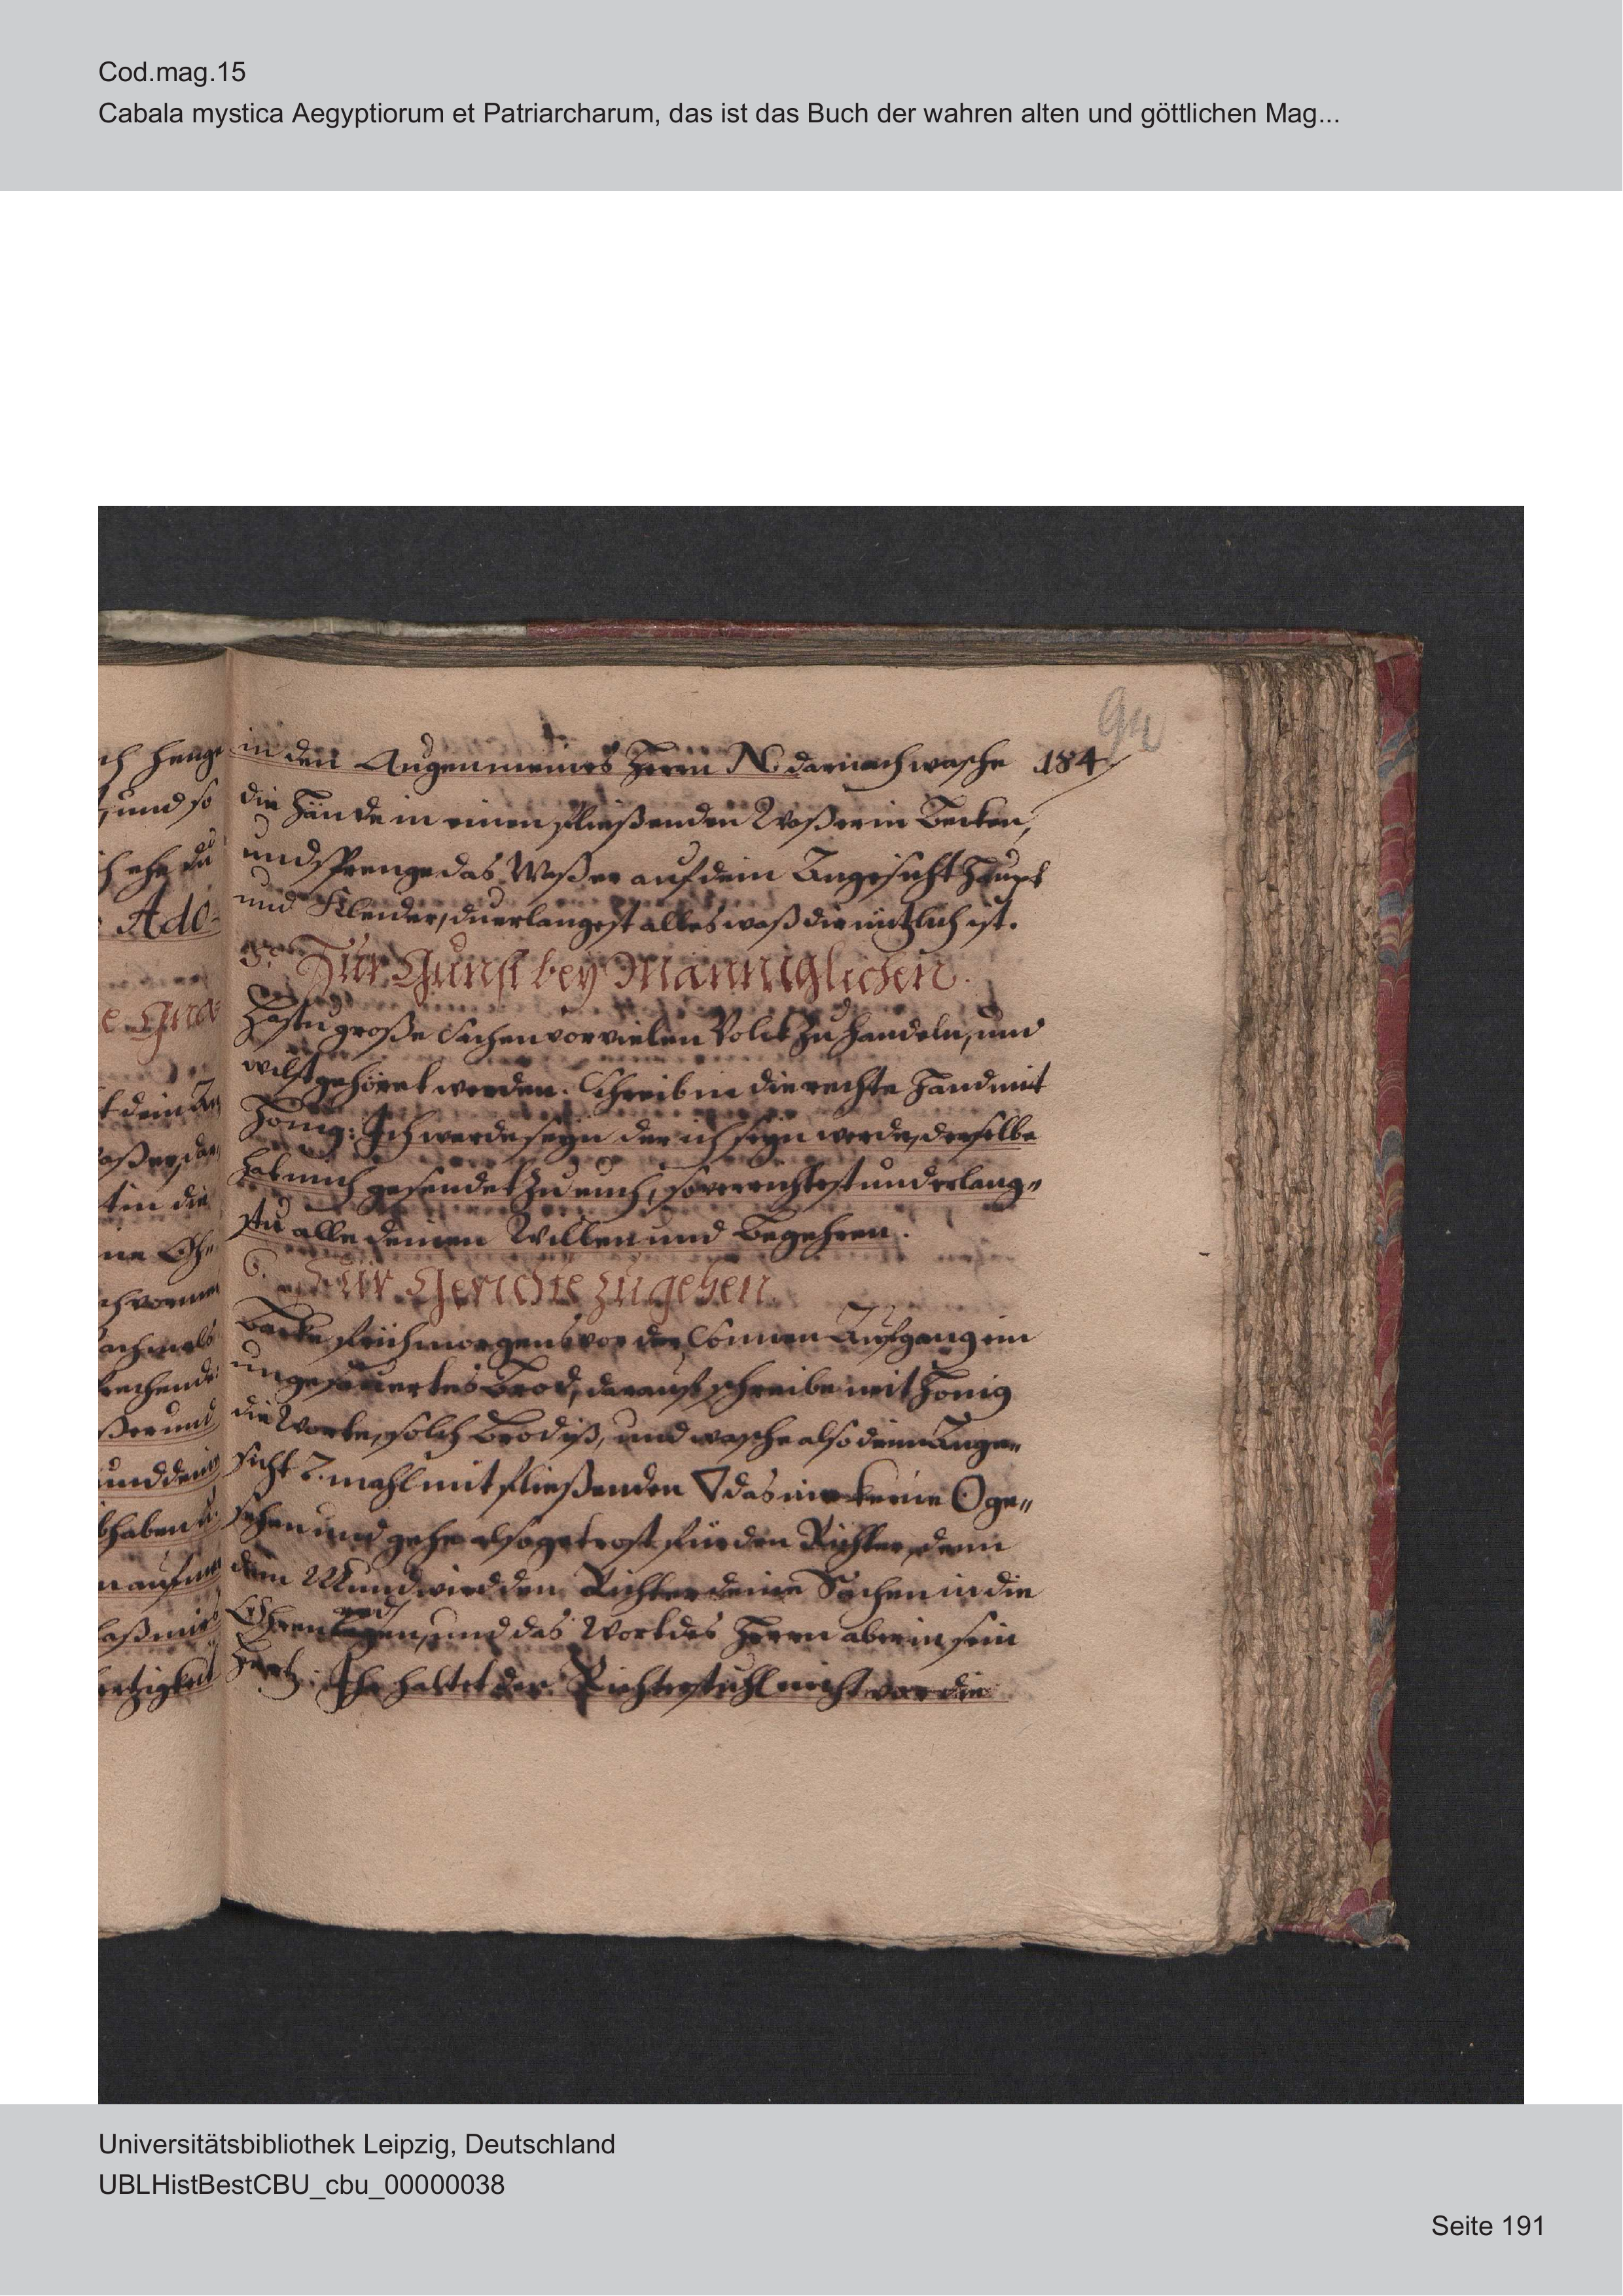 Cod.mag.15
Cabala mystica Aegyptiorum et Patriarcharum, das ist das Buch der wahren alten und göttlichen Mag...
94
in den Augen meines Herrn N. darnach wasche 184
die Hände in einen fließenden Waßer in Becken,
und sprenge das Waßer auf dein Angesicht Haupt
und Kleider, du erlangest alles waß dir nützlich ist.
5. Zur Gunst bey Manniglichen.
Hastu große Sachen vor vielen Volck zu handeln, und
wilst gehöret werden. Schreib in die rechte Hand mit
Honig: Ich werde seyn der ich seyn werde, derselbe
hat mich gesendet zu euch, so verrichtest und erlang„
stu alle deinen Willen und Begehren.
6. Für Gerichte zu gehen
Backe früh morgens vor der Sonnen Aufgang ein
ungesäuertes Brod, darauf schreibe mit Honig
die Worte, solch Brod iß, und wasche also dein Ange„
sicht 7. mahl mit fließenden ▽ das nie keine ⊙ ge„
sehen und gehe also getrost für den Richter, denn
dein Mund wird den Richter deine Sachen in die
Ohren und das Wort des Herrn aber in sein
Hertz. Ihr haltet der Richterstuhl nicht vor die
ch henge
und so
ch ehe du
Ado-
ßer und
und dein
haben
laß mir
Universitätsbibliothek Leipzig, Deutschland
UBLHistBestCBU_cbu_00000038
Seite 191